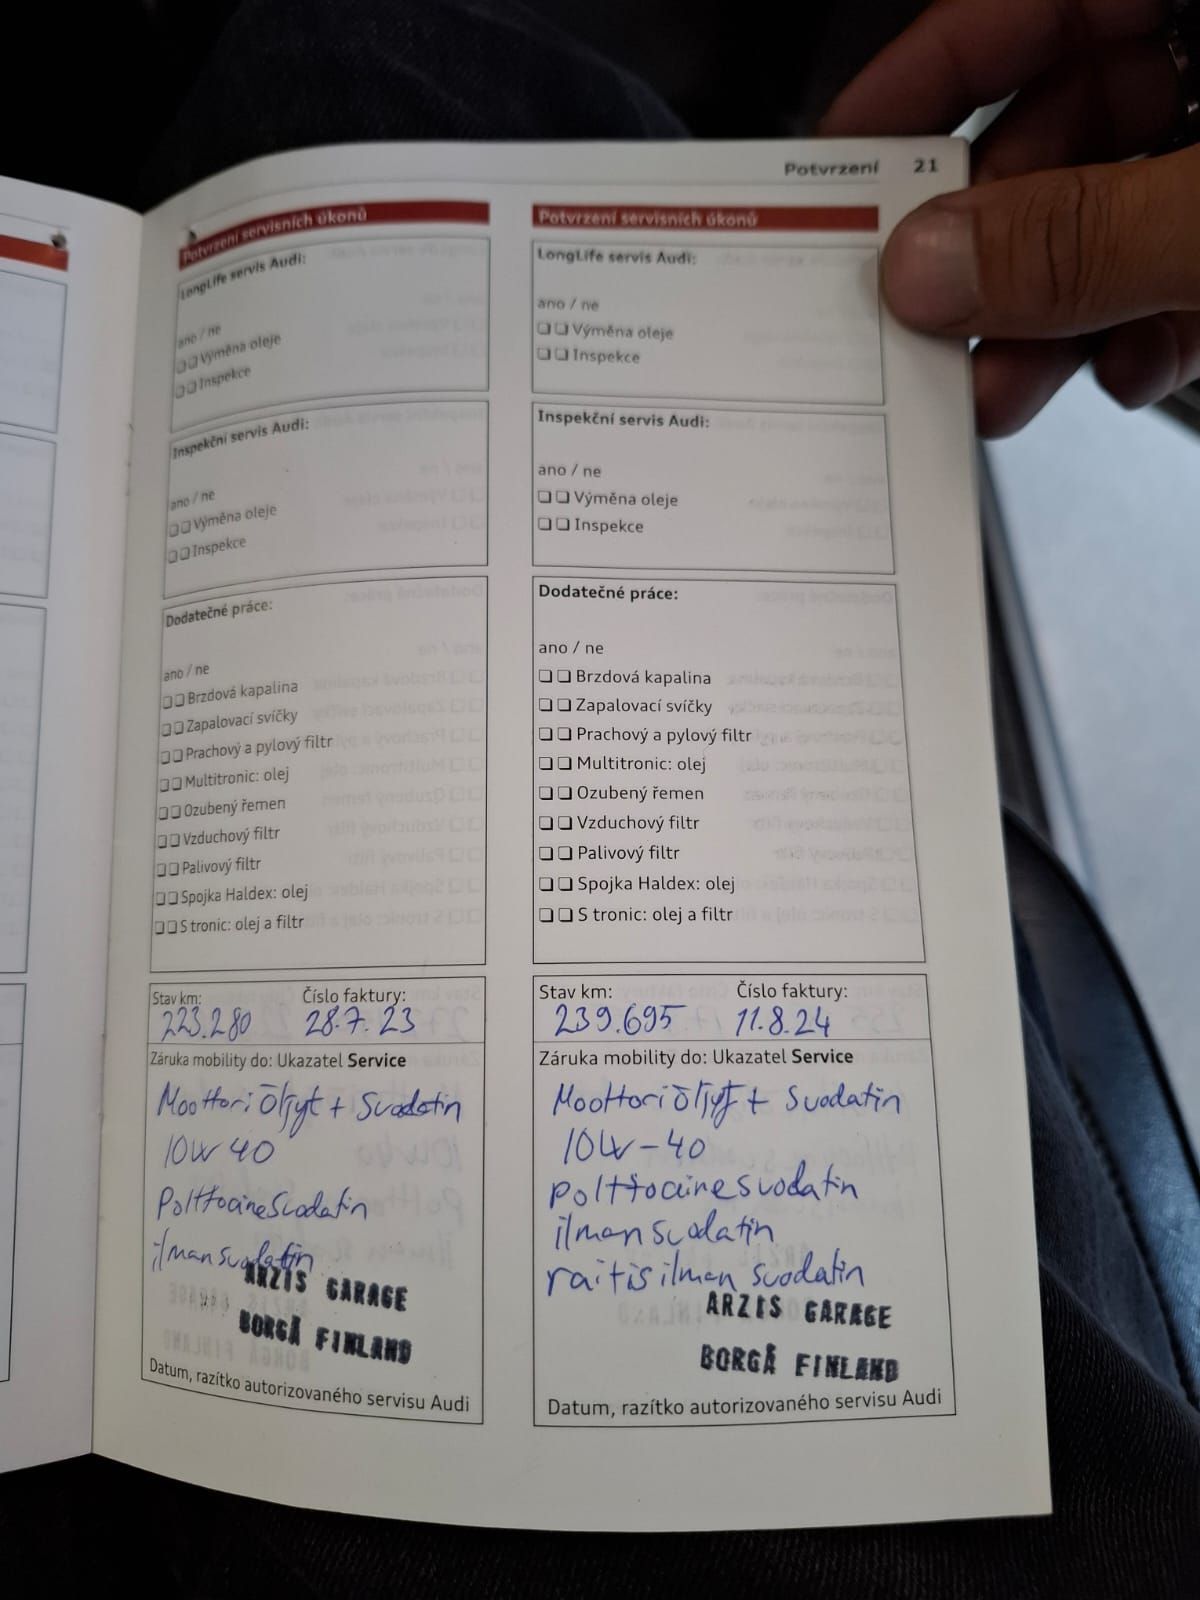 Potvrzení 21
Potvrzení servisních úkonů
LongLife servis Audi:
ano / ne
❏ ❏ Výměna oleje
❏ ❏ Inspekce
Inspekční servis Audi:
ano / ne
❏ ❏ Výměna oleje
❏ ❏ Inspekce
Dodatečné práce:
ano / ne
❏ ❏ Brzdová kapalina
❏ ❏ Zapalovací svíčky
❏ ❏ Prachový a pylový filtr
❏ ❏ Multitronic: olej
❏ ❏ Ozubený řemen
❏ ❏ Vzduchový filtr
❏ ❏ Palivový filtr
❏ ❏ Spojka Haldex: olej
❏ ❏ S tronic: olej a filtr
Stav km: Číslo faktury:
223.280 28.7.23
Záruka mobility do: Ukazatel Service
Moottoriöljyt + Suodatin
10W 40
Polttoainesuodatin
ilmansuodatin
ARZIS GARAGE
BORGÅ FINLAND
Datum, razítko autorizovaného servisu Audi
Potvrzení servisních úkonů
LongLife servis Audi:
ano / ne
❏ ❏ Výměna oleje
❏ ❏ Inspekce
Inspekční servis Audi:
ano / ne
❏ ❏ Výměna oleje
❏ ❏ Inspekce
Dodatečné práce:
ano / ne
❏ ❏ Brzdová kapalina
❏ ❏ Zapalovací svíčky
❏ ❏ Prachový a pylový filtr
❏ ❏ Multitronic: olej
❏ ❏ Ozubený řemen
❏ ❏ Vzduchový filtr
❏ ❏ Palivový filtr
❏ ❏ Spojka Haldex: olej
❏ ❏ S tronic: olej a filtr
Stav km: Číslo faktury:
239.695 11.8.24
Záruka mobility do: Ukazatel Service
Moottoriöljyt + suodatin
10W-40
polttoainesuodatin
ilmansuodatin
raitisilman suodatin
ARZIS GARAGE
BORGÅ FINLAND
Datum, razítko autorizovaného servisu Audi